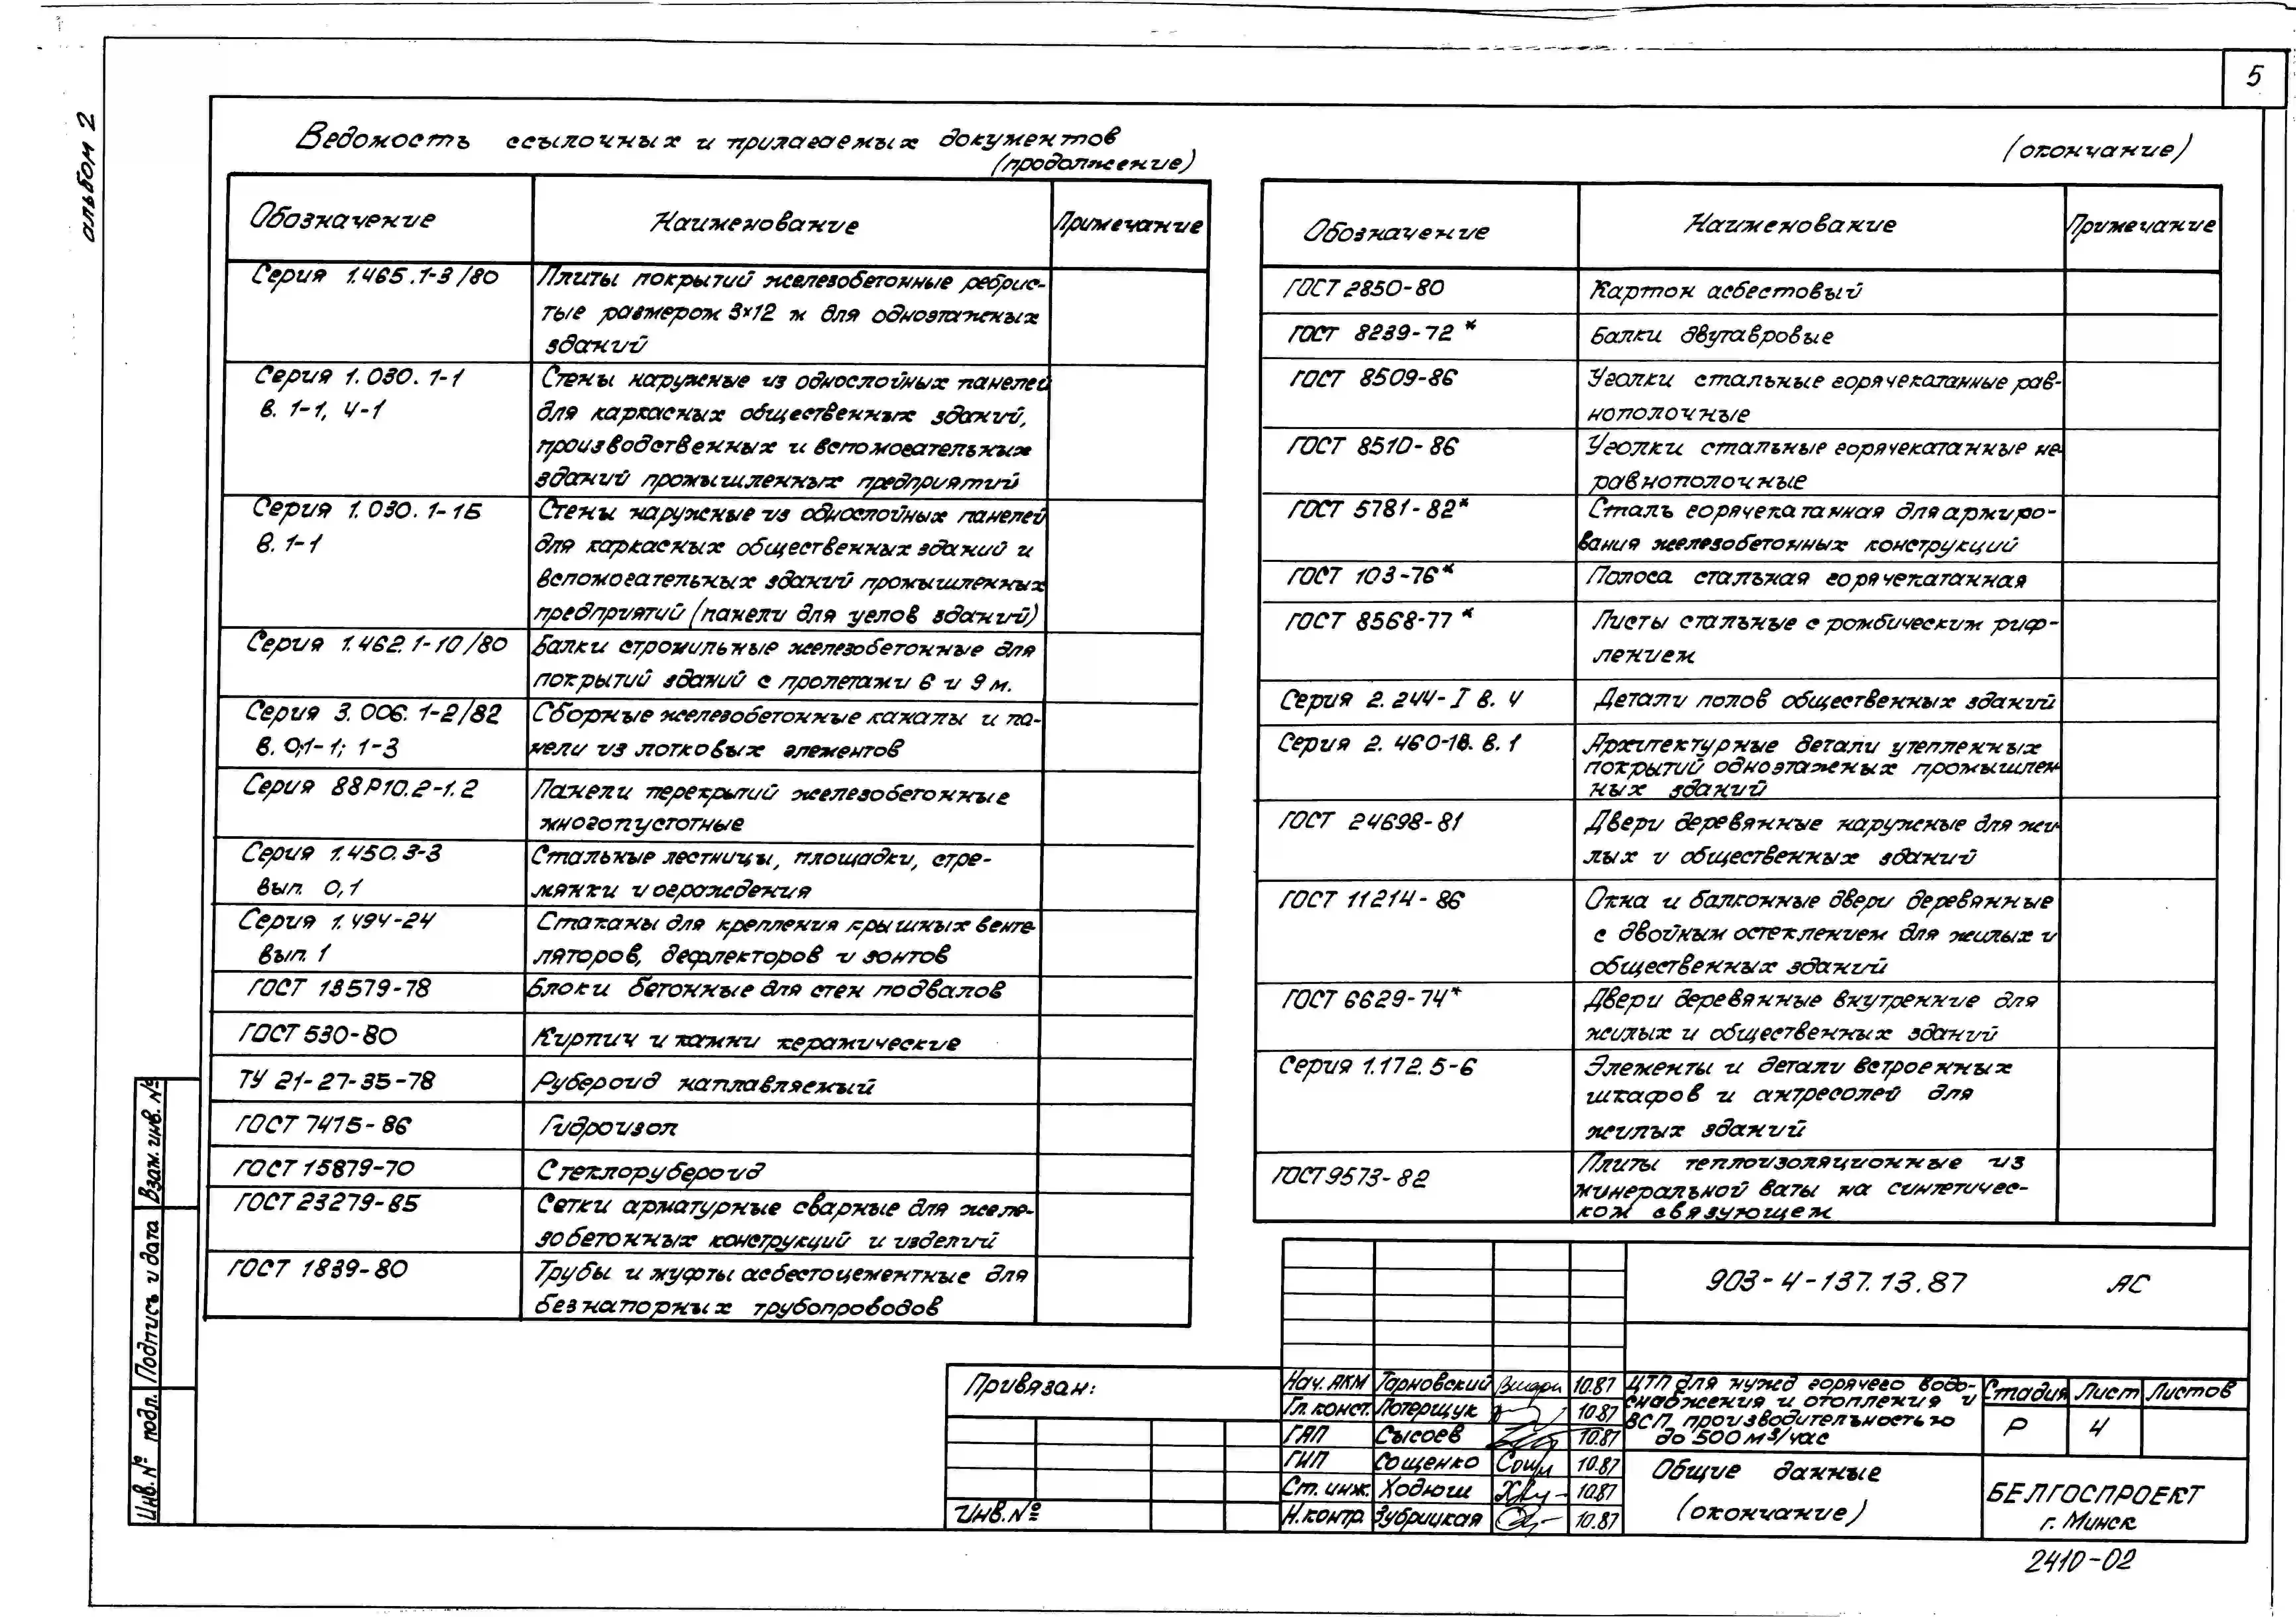 5
альбом 2
Ведомость ссылочных и прилагаемых документов
(продолжение)
Обозначение Наименование Примечание
Серия 1.465.1-3/80 Плиты покрытий железобетонные ребрис-
тые размером 3×12 м для одноэтажных
зданий
Серия 1.030.1-1 Стены наружные из однослойных панелей
в. 1-1, 4-1 для каркасных общественных зданий,
производственных и вспомогательных
зданий промышленных предприятий
Серия 1.030.1-1Б Стены наружные из однослойных панелей
в. 1-1 для каркасных общественных зданий и
вспомогательных зданий промышленных
предприятий (панели для углов зданий)
Серия 1.462.1-10/80 Балки стропильные железобетонные для
покрытий зданий с пролетами 6 и 9 м.
Серия 3.006.1-2/82 Сборные железобетонные каналы и па-
в. 0;1-1; 1-3 нели из лотковых элементов
Серия 88Р10.2-1.2 Панели перекрытий железобетонные
многопустотные
Серия 1.450.3-3 Стальные лестницы, площадки, стре-
вып. 0,1 мянки и ограждения
Серия 1.494-24 Стаканы для крепления крышных венти-
вып. 1 ляторов, дефлекторов и зонтов
ГОСТ 13579-78 Блоки бетонные для стен подвалов
ГОСТ 530-80 Кирпич и камни керамические
ТУ 21-27-35-78 Рубероид наплавляемый
ГОСТ 7415-86 Гидроизол
ГОСТ 15879-70 Стеклорубероид
ГОСТ 23279-85 Сетки арматурные сварные для желе-
зобетонных конструкций и изделий
ГОСТ 1839-80 Трубы и муфты асбестоцементные для
безнапорных трубопроводов
(окончание)
Обозначение Наименование Примечание
ГОСТ 2850-80 Картон асбестовый
ГОСТ 8239-72* Балки двутавровые
ГОСТ 8509-86 Уголки стальные горячекатанные рав-
нополочные
ГОСТ 8510-86 Уголки стальные горячекатанные не-
равнополочные
ГОСТ 5781-82* Сталь горячекатанная для армиро-
вания железобетонных конструкций
ГОСТ 103-76* Полоса стальная горячекатанная
ГОСТ 8568-77* Листы стальные с ромбическим риф-
лением
Серия 2.244-I в. 4 Детали полов общественных зданий
Серия 2.460-18. в. 1 Архитектурные детали утепленных
покрытий одноэтажных промышлен-
ных зданий
ГОСТ 24698-81 Двери деревянные наружные для жи-
лых и общественных зданий
ГОСТ 11214-86 Окна и балконные двери деревянные
с двойным остеклением для жилых и
общественных зданий
ГОСТ 6629-74* Двери деревянные внутренние для
жилых и общественных зданий
Серия 1.172.5-6 Элементы и детали встроенных
шкафов и антресолей для
жилых зданий
ГОСТ 9573-82 Плиты теплоизоляционные из
минеральной ваты на синтетичес-
ком связующем
Взам. инв. №
Подпись и дата
Инв. № подл.
Привязан:
Инв. №
903-4-137.13.87 АС
Нач. АКМ Тарновский 10.87
Гл. конст. Потерщук 10.87
ГАП Сысоев 10.87
ГИП Сощенко 10.87
Ст. инж. Ходюш 10.87
Н. контр. Зубрицкая 10.87
ЦТП для нужд горячего водо-
снабжения и отопления и
ВСП производительностью
до 500 м³/час
Стадия Лист Листов
Р 4
Общие данные
(окончание)
БЕЛГОСПРОЕКТ
г. Минск
2410-02